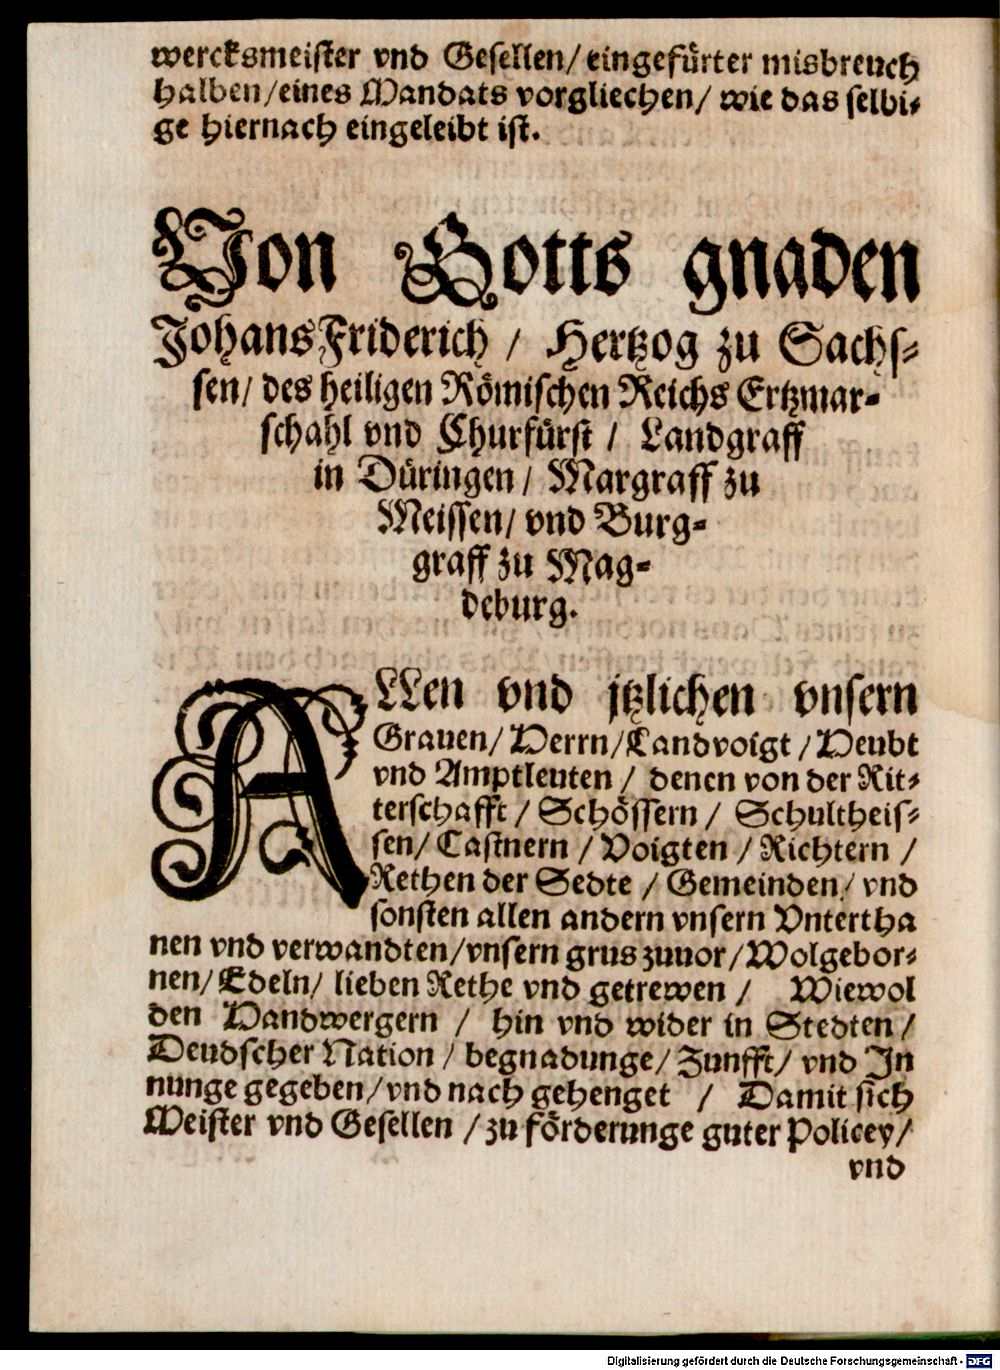 wercksmeister vnd Gesellen/ eingefürter misbreuch
halben/eines Mandats vorgliechen/ wie das selbi-
ge hiernach eingeleibt ist.
Von Gotts gnaden
Johans Friderich / Hertzog zu Sachs-
sen/ des heiligen Römischen Reichs Ertzmar-
schahl vnd Churfürst / Landgraff
in Düringen / Margraff zu
Meissen/ vnd Burg-
graff zu Mag-
deburg.
ALLen vnd jtzlichen vnsern
Grauen/ Herrn/Landvoigt / Heubt
vnd Amptleuten / denen von der Rit-
terschafft / Schössern / Schultheis-
sen/ Castnern / Voigten / Richtern /
Rethen der Sedte / Gemeinden/ vnd
sonsten allen andern vnsern Vntertha
nen vnd verwandten/vnsern grus zuuor/Wolgebor-
nen/ Edeln/ lieben Rethe vnd getrewen / Wiewol
den Handwergern / hin vnd wider in Stedten /
Deudscher Nation / begnadunge/ Zunfft/ vnd In
nunge gegeben/vnd nach gehenget / Damit sich
Meister vnd Gesellen / zu förderunge guter Policey/
vnd
Digitalisierung gefördert durch die Deutsche Forschungsgemeinschaft - DFG